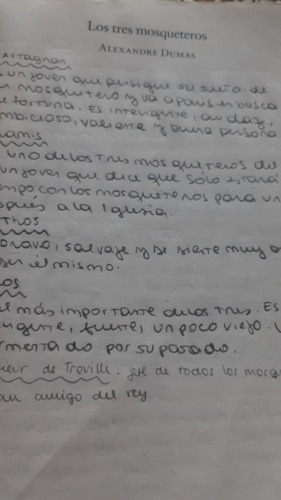 Los tres mosqueteros
ALEXANDRE DUMAS
ARTAGNAN
un joven que persigue su sueño de
mosquetero y va a París en busca
fortuna. Es inteligente, audaz,
mbicioso, valiente y buena persona
amis
uno de los tres mosqueteros del
un joven que dice que sólo estará
mpo con los mosqueteros para un
spués a la Iglesia.
thos
bravo, salvaje y se siente muy o
ser él mismo.
os
el más importante de los tres. Es
igente, fuerte, un poco viejo.
mentado por su pasado.
de Treville. jefe de todos los mosq
an amigo del rey